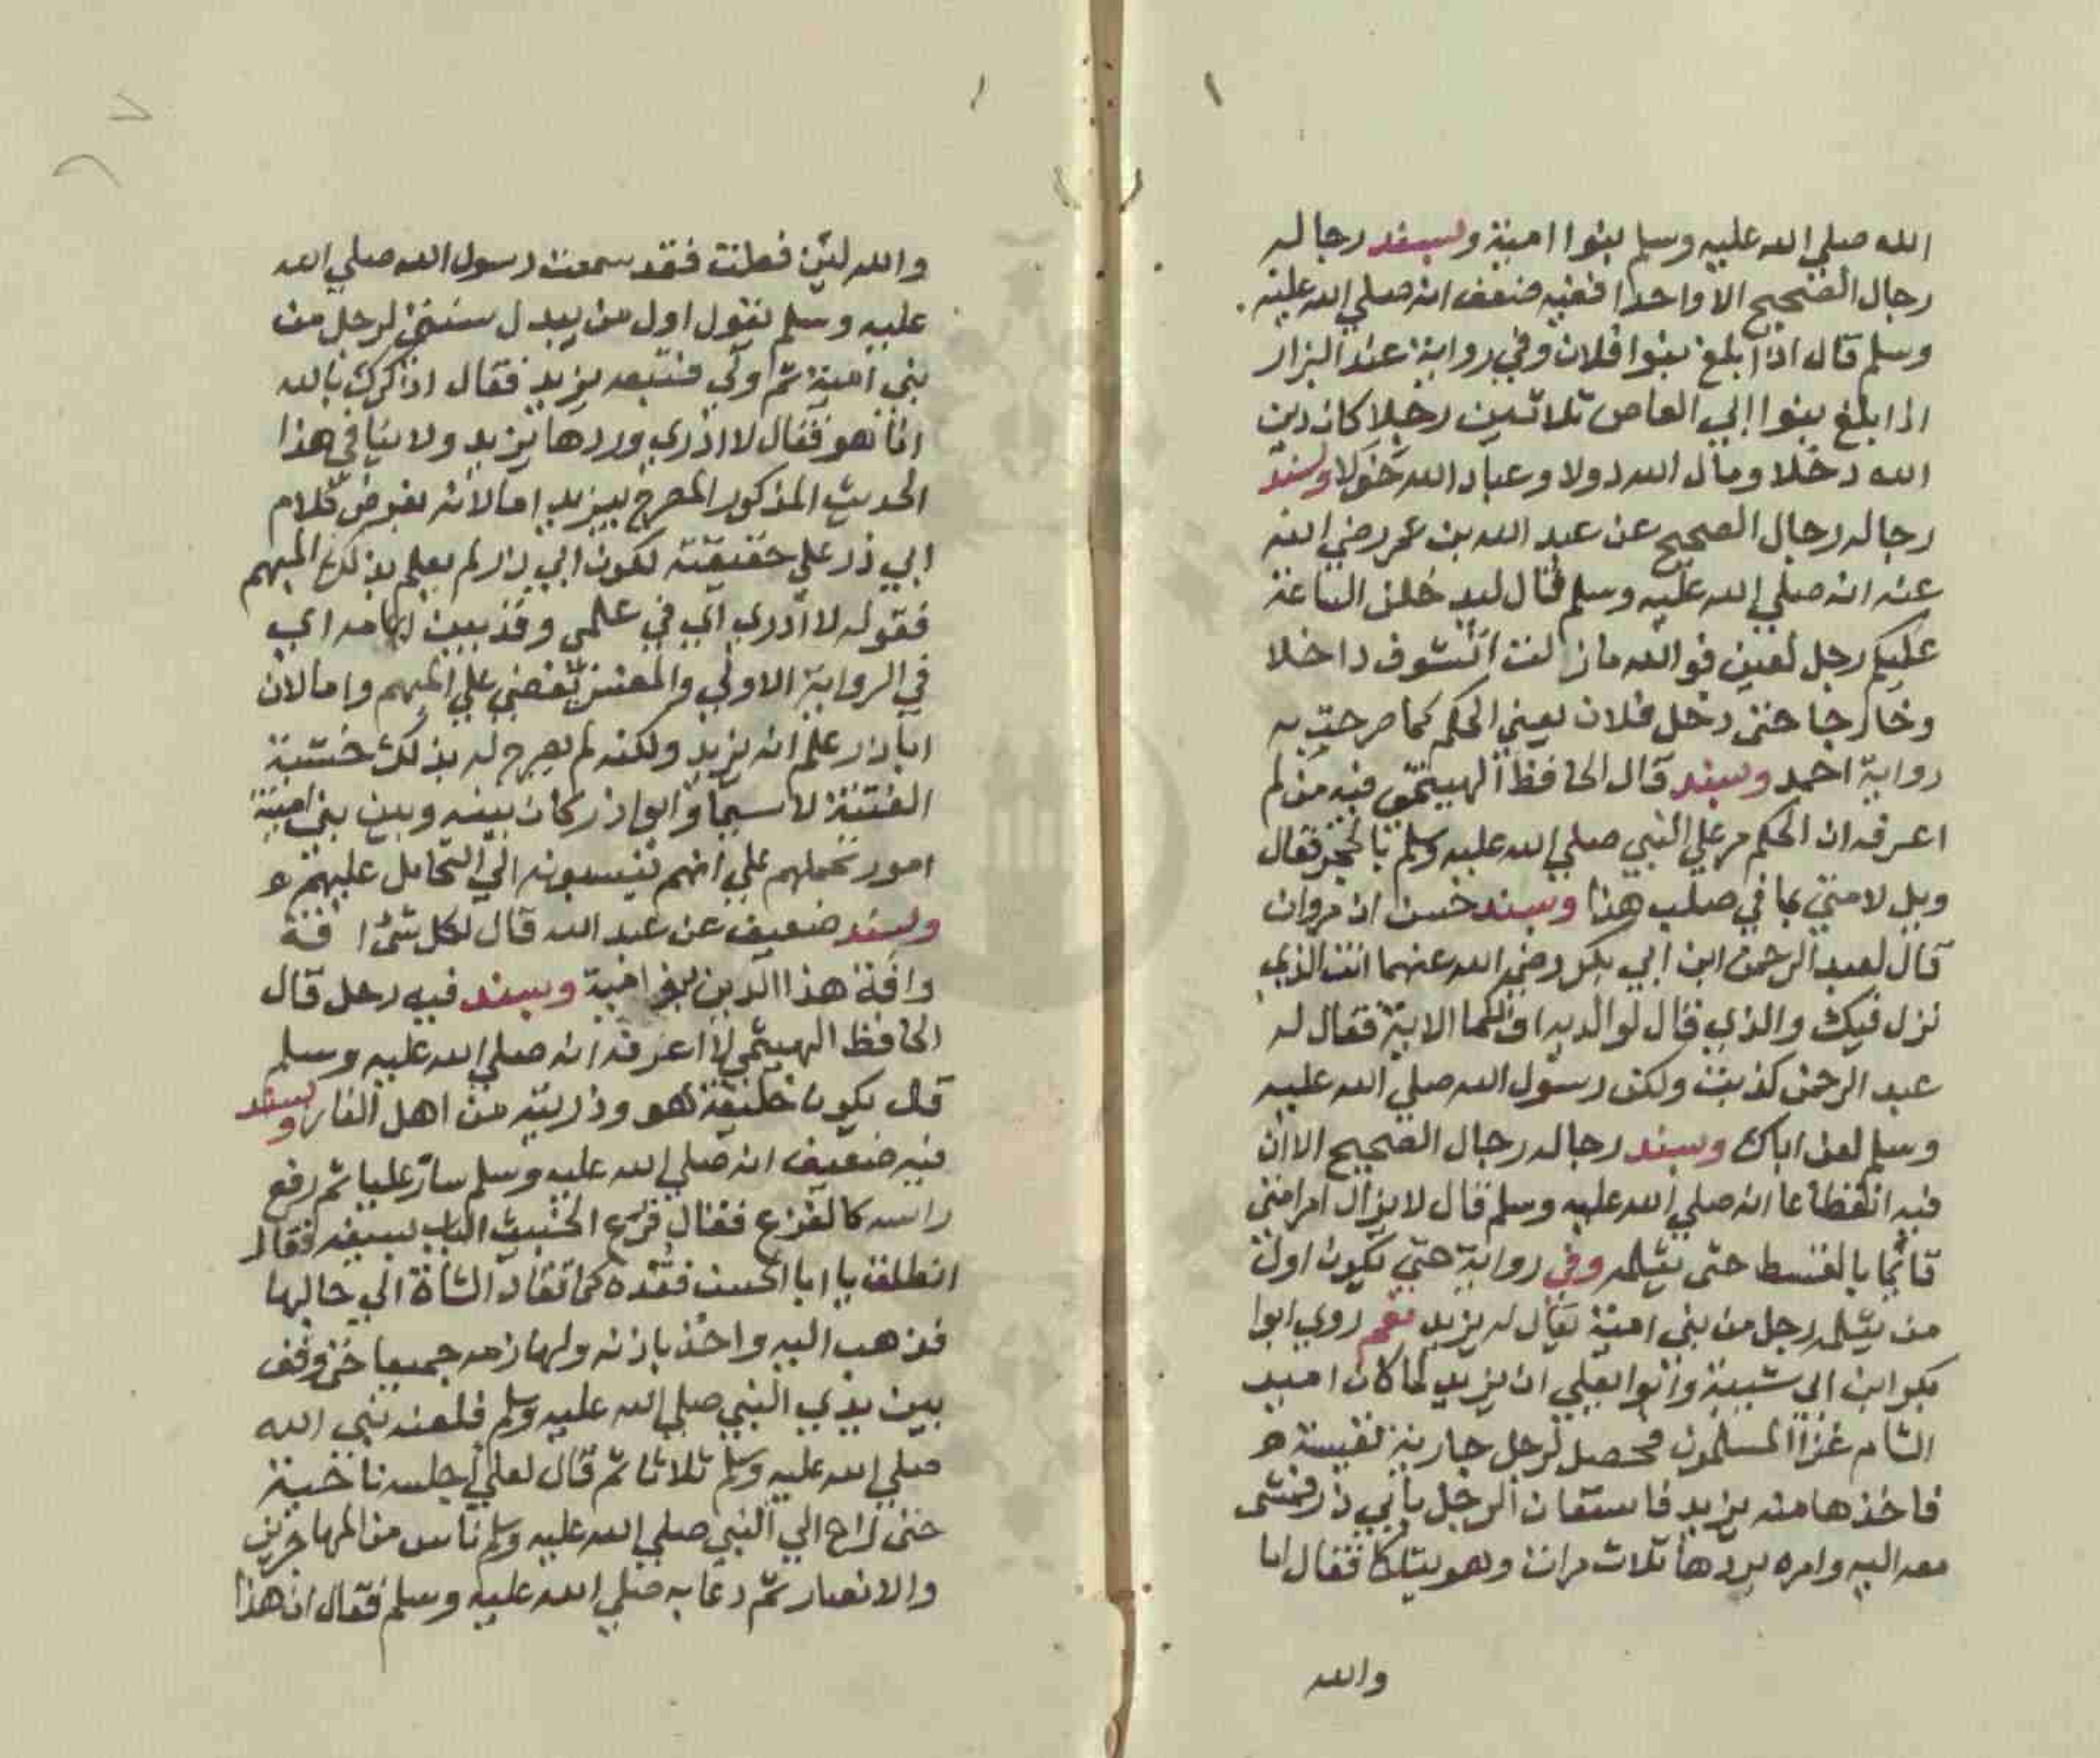 الله صلي الله عليه وسلم بنوا امية وبسند رجاله
رجال الصحيح الا واحدا ففيه ضعف انه صلي الله عليه
وسلم قال اذا بلغ بنوا فلان وفي رواية عند البزار
اذا بلغ بنوا ابي العاص ثلاثين رجلا كان دين
الله دخلا ومال الله دولا وعباد الله خولا وبسند
رجاله رجال الصحيح عن عبد الله بن عمر رضي الله
عنه انه صلي الله عليه وسلم قال ليدخلن الساعة
عليكم رجل لعين فوالله ما زالت اتشوف داخلا
وخارجا حتى دخل فلان يعني الحكم كما صرحت به
رواية احمد وبسند قال الحافظ الهيتمي فيه من لم
اعرفه ان الحكم مر علي النبي صلي الله عليه وسلم بالحجر فقال
ويل لامتي مما في صلب هذا وبسند حسن ان مروان
قال لعبد الرحمن ابن ابي بكر رضي الله عنهما انت الذي
نزل فيك والذي قال لوالديه اف لكما الاية فقال له
عبد الرحمن كذبت ولكن رسول الله صلي الله عليه
وسلم لعن اباك وبسند رجاله رجال الصحيح الا ان
فيه انقطاعا انه صلي الله عليه وسلم قال لا يزال امر امتي
قائما بالقسط حتى يثلمه وفي رواية حتي يكون اول
من يثلمه رجل من بني امية يقال له يزيد نعم روي ابوا
بكر ابن ابي شيبة وابوا يعلي ان يزيد لما كان امير
الشام غزا المسلمون فحصل لرجل جارية نفيسة
فاخذها منه يزيد فاستعان الرجل بابي ذر فمشى
معه اليه وامره بردها ثلاث مرات وهو يتلكا فقال اما
والله
والله لئن فعلت فقد سمعت رسول الله صلي الله
عليه وسلم يقول اول من يبدل سنتي لرجل من
بني امية ثم ولي فتبعه يزيد فقال اذكرك بالله
انا هو فقال لا ادري وردها يزيد ولا ينافي هذا
الحديث المذكور المصرح بيزيد اما لانه بفرض كلام
ابي ذر علي حقيقته لكون ابي ذر لم يعلم بذلك المبهم
فقوله لا ادري اي في علمي وقد بين ابهامه اي
في الرواية الاولي والمفسر يقضي علي المبهم واما لان
ابا ذر علم انه يزيد ولكنه لم يصرح له بذلك خشية
الفتنة لا سيما وابوا ذر كان بينه وبين بني امية
امور تحملهم علي انهم ينسبونه الي التحامل عليهم
وبسند ضعيف عن عبد الله قال لكل شئ افة
وافة هذا الدين بنو امية وبسند فيه رجل قال
الحافظ الهيثمي لا اعرفه انه صلي الله عليه وسلم
قال يكون خليفة هو وذريته من اهل النار وبسند
فيه ضعيف انه صلي الله عليه وسلم سار عليا ثم رفع
راسه كالفزع فقال قرع الخبيث الباب بسيفه فقال
انطلق يا ابا الحسن فقده كما تقاد الشاة الي حالبها
فذهب اليه واخذ باذنه ولهازمه جميعا حتى وقف
بين يدي النبي صلي الله عليه وسلم فلعنه نبي الله
صلي الله عليه وسلم ثلاثا ثم قال لعلي اجلسه ناحية
حتى راح الي النبي صلي الله عليه وسلم ناس من المهاجرين
والانصار ثم دعا به صلي الله عليه وسلم فقال ان هذا